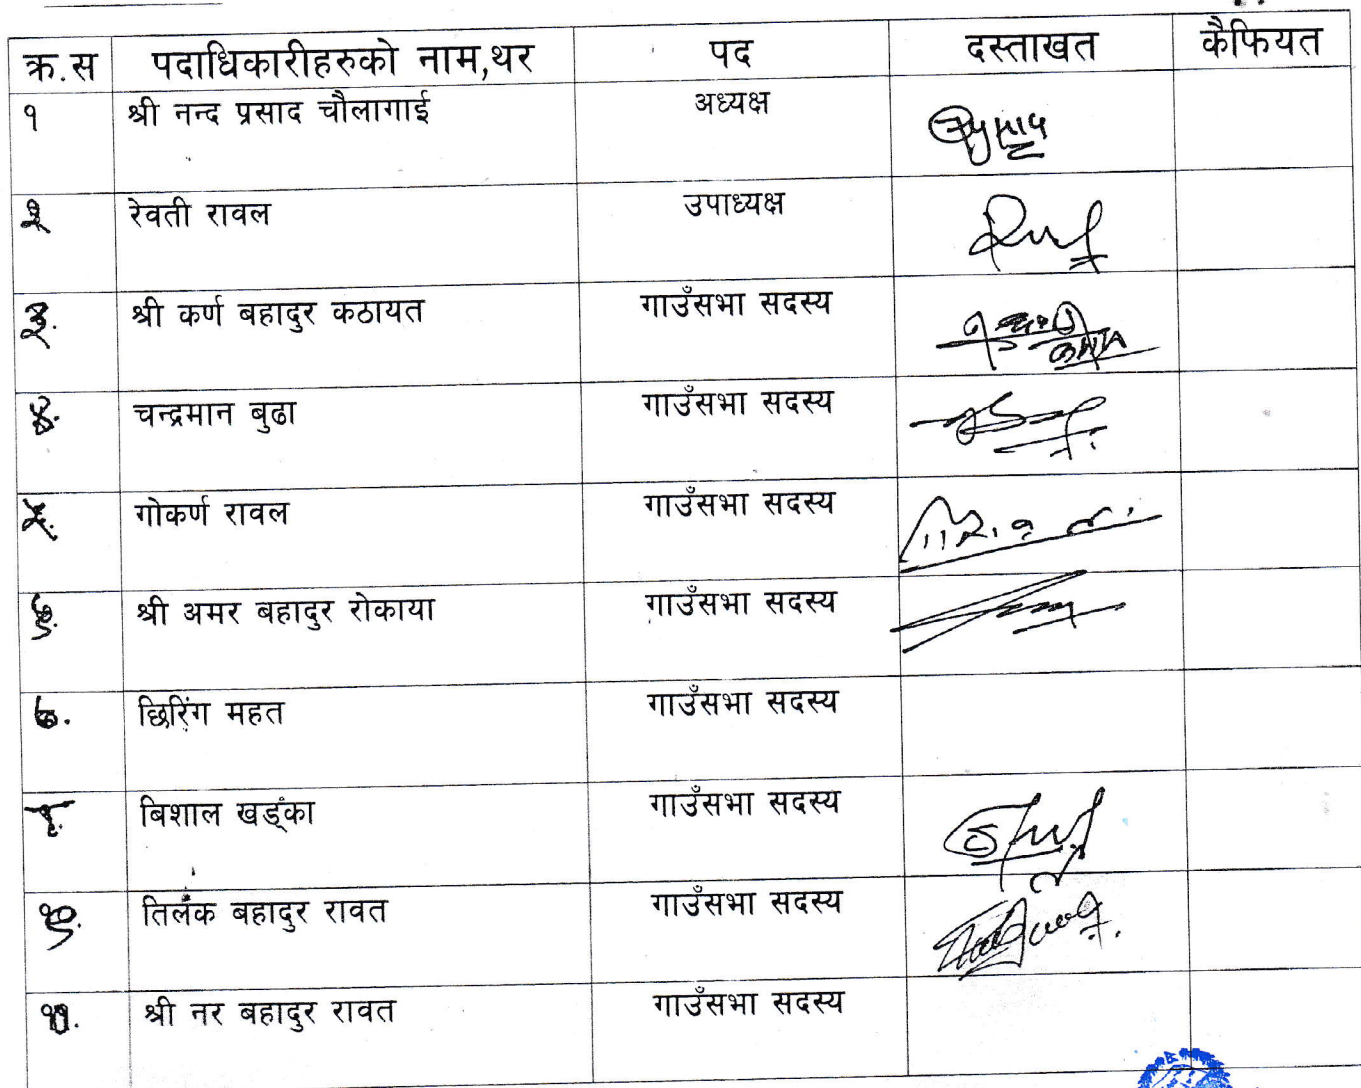 क्र.स पदाधिकारीहरुको नाम,थर पद दस्ताखत कैफियत
१ श्री नन्द प्रसाद चौलागाई अध्यक्ष
२ रेवती रावल उपाध्यक्ष
३. श्री कर्ण बहादुर कठायत गाउँसभा सदस्य
४. चन्द्रमान बुढा गाउँसभा सदस्य
५. गोकर्ण रावल गाउँसभा सदस्य
६. श्री अमर बहादुर रोकाया गाउँसभा सदस्य
७. छिरिंग महत गाउँसभा सदस्य
८. बिशाल खड्ंका गाउँसभा सदस्य
९. तिलक बहादुर रावत गाउँसभा सदस्य
१०. श्री नर बहादुर रावत गाउँसभा सदस्य